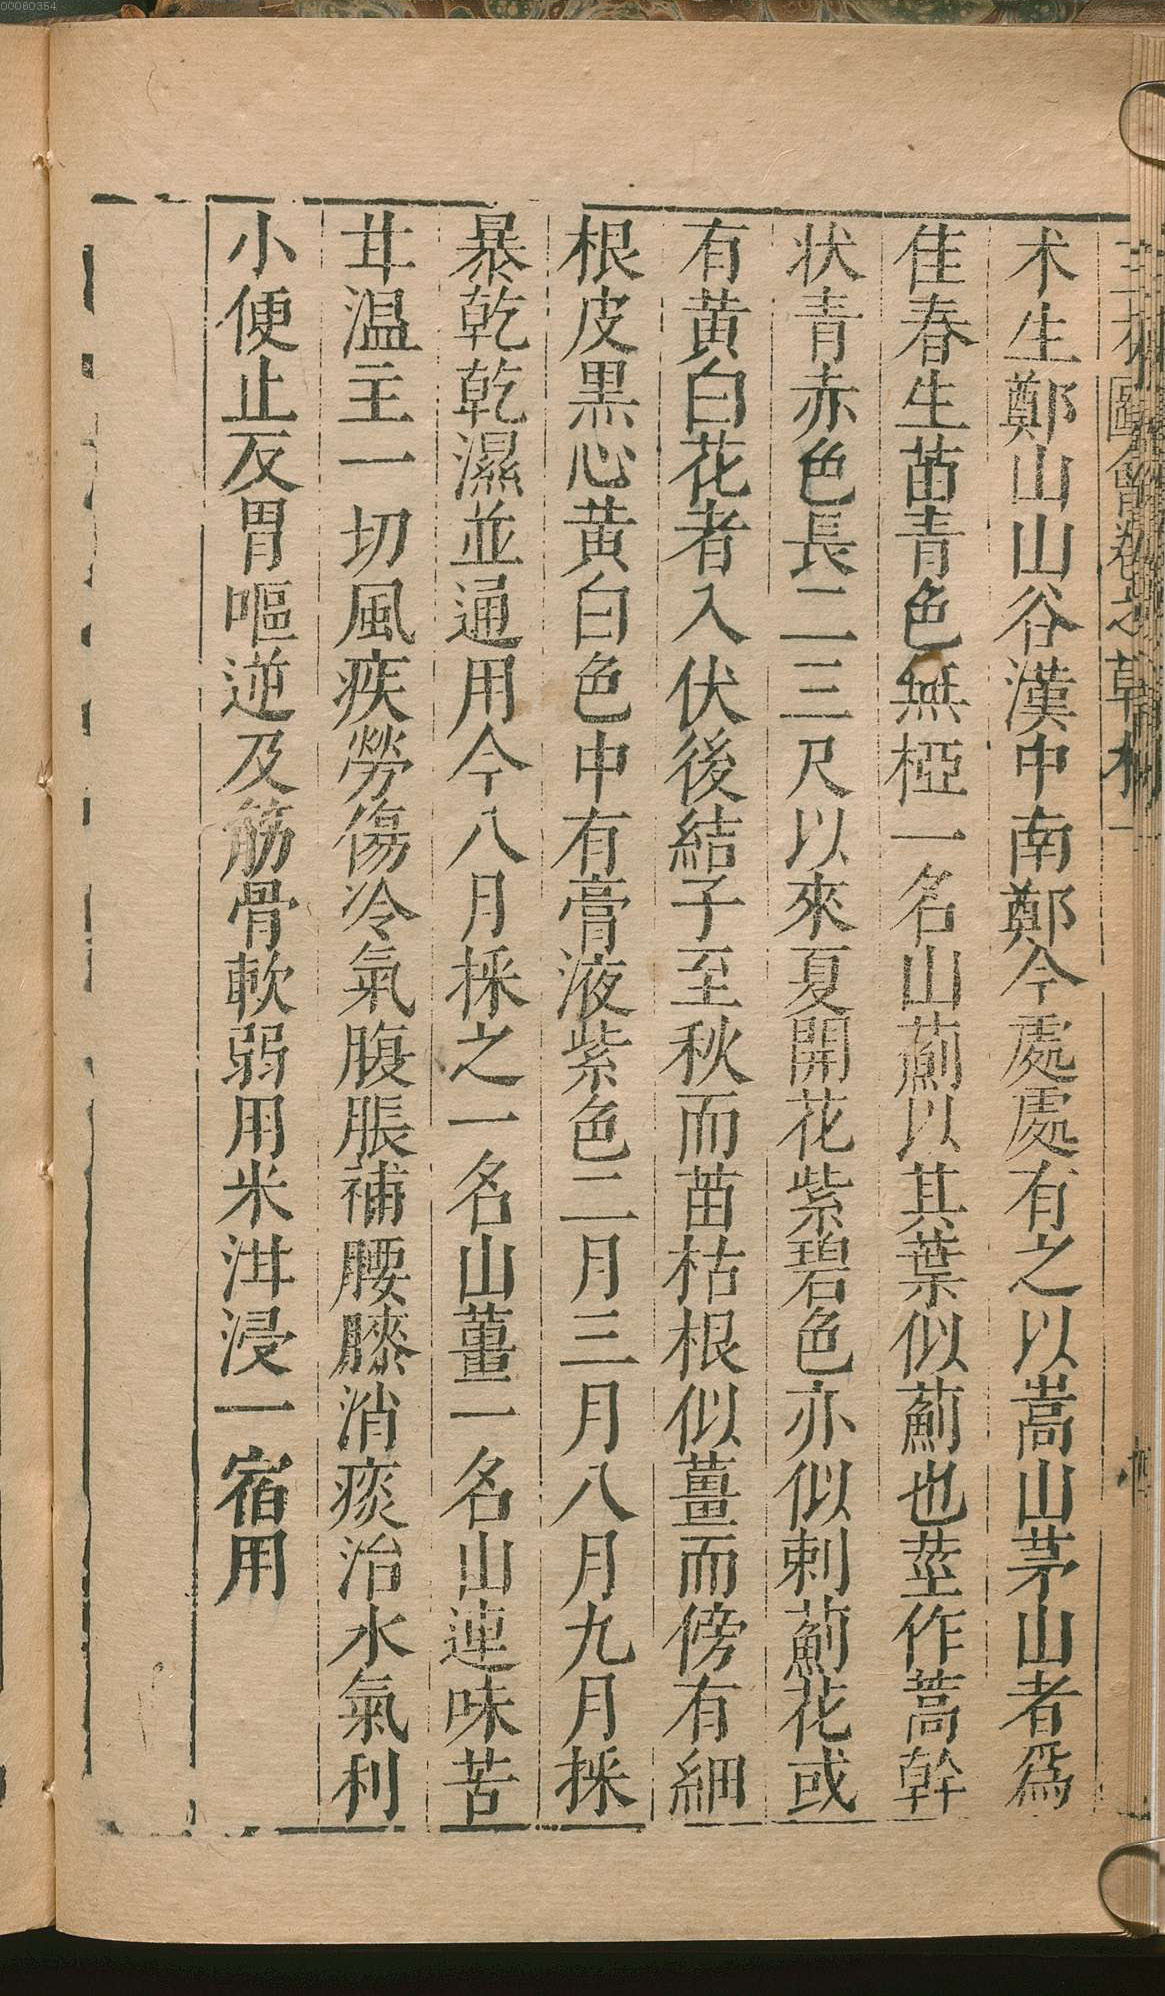 00060354
三才圖會卷之草木一
朮生鄭山山谷漢中南鄭今處處有之以嵩山茅山者爲
佳春生苗青色無椏一名山薊以其葉似薊也莖作蒿幹
狀青赤色長二三尺以來夏開花紫碧色亦似刺薊花或
有黄白花者入伏後結子至秋而苗枯根似薑而傍有細
根皮黒心黄白色中有膏液紫色二月三月八月九月採
暴乾乾濕並通用今八月採之一名山薑一名山連味苦
甘温主一切風疾勞傷冷氣腹脹補腰膝消痰治水氣利
小便止反胃嘔逆及筋骨軟弱用米泔浸一宿用